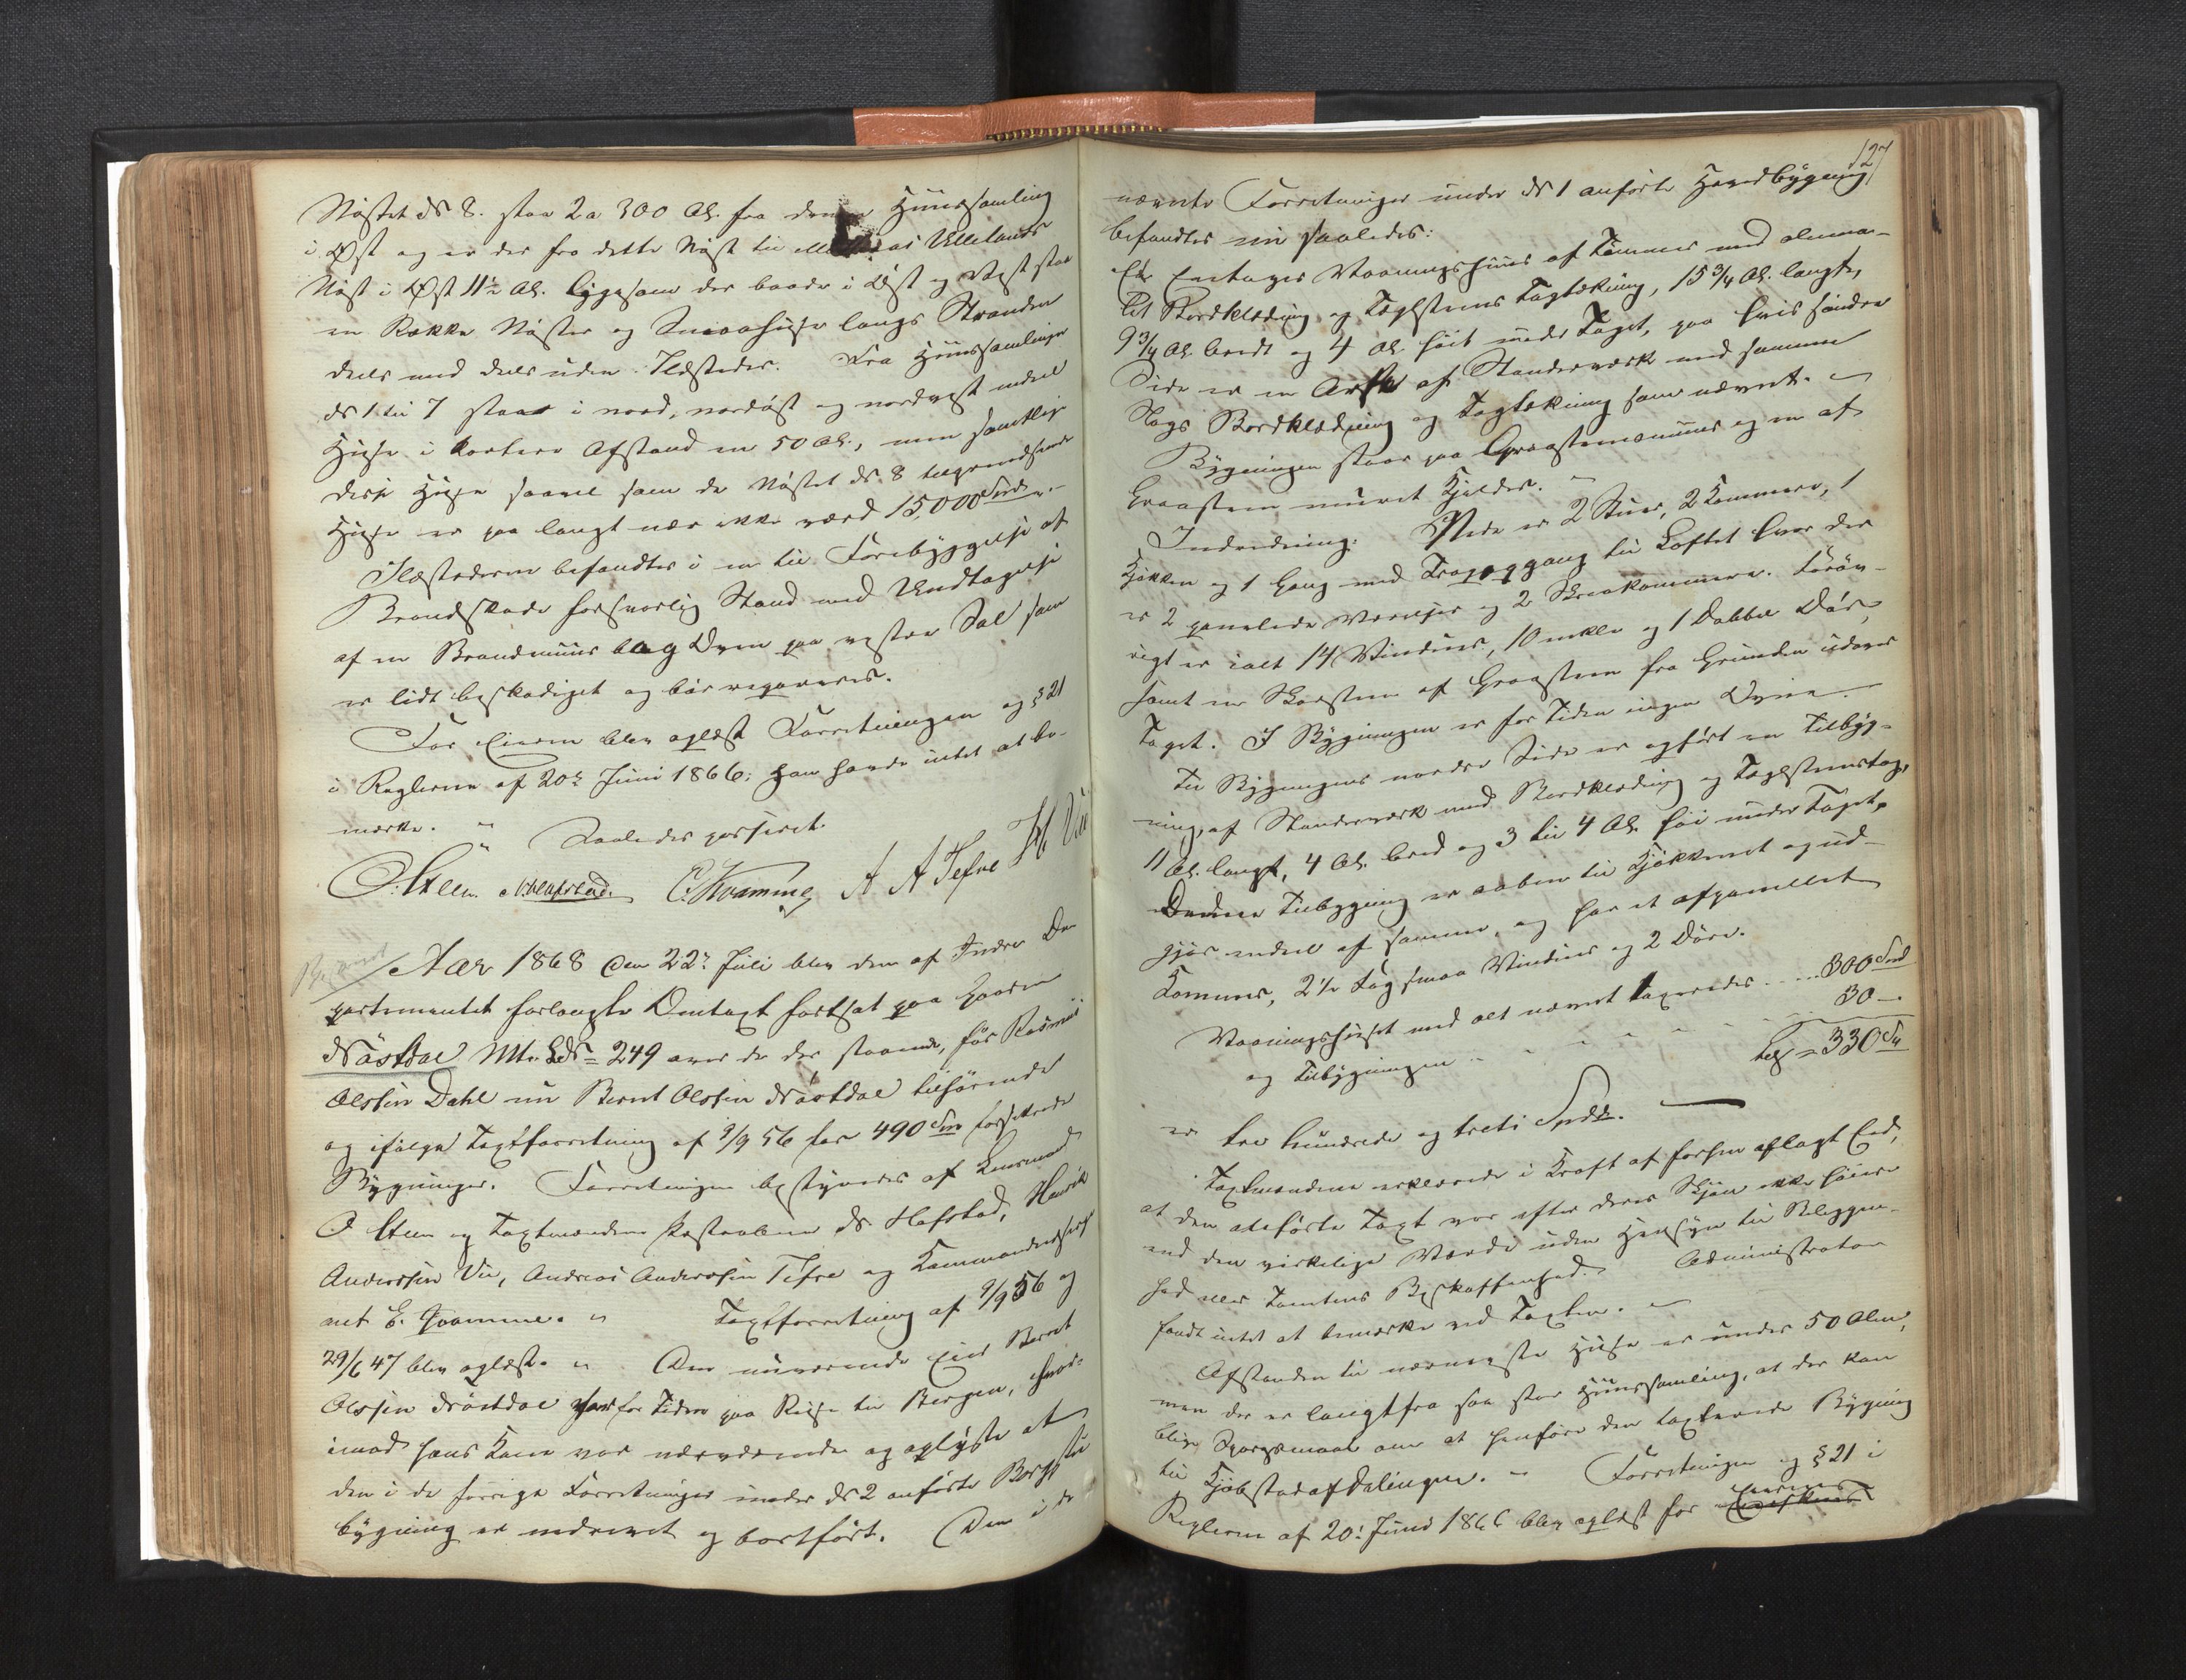 Nøstet № 8. staa 2 a 300 Al. fra denne Huussamling
i Øst og er der fra dette Nøst til Ullelands
Nøst i Øst 11½ Al. ligesom der baade i Øst og Vest staa
en Række Nøster og Smaahuse langs Stranden
deels med deels uden Ildsteder. Fra Huussamlingen
№ 1 til 7 staar i nord, nordøst og nordvest endeel
Huse i kortere Afstand en 50 Al., men samtlige
disse Huse saavel som de Nøstet № 8 begrændsende
Huse er paa langt nær ikke værd 15,000 Spd. –
Ildstederne befandtes i en til Forebyggelse af
Brandskade forsvarlig Stand med Undtagelse
af en Brandmuur bag Ovnen paa vestre Sal som
er lidt beskadiget og bør repareres.
For Eieren blev oplæst Forretningen og § 21
i Reglerne af 20de Juni 1866; han havde intet at be-
mærke. " Saaledes passeret.
O. Steen N. Hafstad. E. Kvamme A A Tefre H Vii
Aar 1868 den 22de Juli blev den af Indre De-
partementet forlangte Omtaxt fortsat paa Gaarden
Nøstdal Mt. L № 249 over de der staaende, før Rasmus
Olssøn Dahl nu Bernt Olssøn Nøstdal tilhørende
og ifølge Taxtforretning af 9/9 56 for 490 Spd forsikrede
Bygninger. Forretningen bestyredes af Lensmand
O Steen og Taxtmændene N. Hafstad, Henrik
Anderssøn Vii, Andreas Anderssøn Tefre og
E. Qvamme. " Taxtforretning af 9/9 56 og
29/6 47 blev oplæst. " Den nuværende Eier Bernt
Olssøn Nøstdal var for Tiden paa Reise til Bergen, hvor-
imod hans Kone var nærværende og oplyste at
den i de forrige Forretninger under № 2 anførte
bygning er nedrevet og bortført. Den i de
127
nævnte Forretninger under № 1 anførte Hovedbygning
befandtes nu saaledes:
Et Eentages Vaaningshuus af Tømmer med almin-
lig Bordklædning og Teglsteens Tagtækning, 15¾ Al. langt,
9¾ Al. bredt og 4 Al. høit under Taget, paa hvis søndre
Side er en Ark af Standerværk med samme
Slags Bordklædning og Tagtækning som nævnt. –
Bygningen staar paa Graasteensmuur og en af
Graasteen muret Kjelder. –
Indredning: Nede er 2 Stuer, 2 Kammere, 1
Kjøkken og 1 Gang med Trapegang til Loftet hvor der
er 2 panelede Værelser og 2 Skraakammere. Forøv-
rigt er ialt 14 Vinduer, 10 enkle og 1 Dobbel Dør,
samt en Skorsteen af Graasteen fra Grunden udover
Taget. I Bygningen er for Tiden ingen Ovne.
Til Bygningens nordre Side er opført en Tilbyg-
ning, af Standerværk med Bordklædning og Teglsteenstag,
11 Al. langt, 4 Al. bred og 3 til 4 Al. høi under Taget.
Denne Tilbygning er aaben til Kjøkkenet og ud-
gjør endeel af samme, og har et afpanellet
Kammer, 2½ Fag smaa Vinduer og 2 Døre.
Vaaningshuset med alt nævnt taxeredes .... 300 Spd
og Tilbygningen " " " " " 30 –
tilsm = 330 Spd
er tre hundrede og treti Spdl. —
Taxtmændene erklærede i Kraft af forhen aflagt Eed,
at den anførte Taxt var efter deres Skjøn ikke høiere
end den virkelige Værdi uden Hensyn til Beliggen-
hed eller Tomtens Beskaffenhed. Administrator
fandt intet at bemærke ved Taxten. –
Afstanden til nærmeste Huse er under 50 Alen,
men der er langtfra saa stor Huussamling, at der kan
blive Spørgsmaal om at henføre den taxerede Bygning
til Kjøbstadafdelingen. – Forretningen og § 21 i
Reglerne af 20de Juni 1866 blev oplæst for Eierens